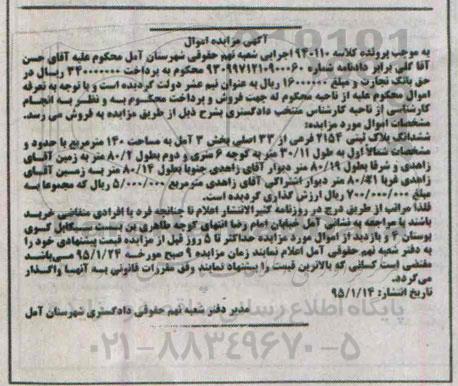 آگهی مزایده اموال
به موجب پرونده کلاسه ۹۴۰۱۱۰ اجرایی شعبه نهم حقوقی شهرستان آمل محکوم علیه آقای حسن
آقا گلی برابر دادنامه شماره ۹۳۰۹۹۷۱۲۱۰۹۰۰۰۶۰ محکوم به پرداخت ۳۴۰۰۰۰۰۰۰ ریال در
حق بانک تجارت و مبلغ ۱۶۰۰۰۰۰۰ ریال به عنوان نیم عشر دولت گردیده است و با توجه به تعرفه
اموال محکوم علیه از ناحیه محکوم له جهت فروش و پرداخت محکوم به و نظر به انجام
کارشناسی از ناحیه کارشناس منتخب دادگستری بشرح ذیل از طریق مزایده به فروش می رسد.
مشخصات اموال مورد مزایده:
ششدانگ پلاک ثبتی ۲۱۵۴ فرعی از ۳۳ اصلی بخش ۳ آمل به مساحت ۱۴۰ مترمربع با حدود و
مشخصات شمالاً اول به طول ۳۰/۱۱ متر به کوچه ۶ متری و دوم بطول ۸۰/۲ متر به زمین آقای
زاهدی و شرقا بطول ۸۰/۱۹ متر دیوار آقای زاهدی جنوبا بطول ۸۰/۱۴ متر به زمین آقای
زاهدی غربا ۸۰/۲۱ متر دیوار اشتراکی آقای زاهدی مترمربع ۵/۰۰۰/۰۰۰ ریال که مجموعا به
مبلغ ۷۰۰/۰۰۰/۰۰۰ ریال ارزش گذاری گردیده است.
فلذا مراتب از طریق درج در روزنامه کثیرالانتشار اعلام تا چنانچه فرد یا افرادی متقاضی خرید
باشند با مراجعه به نشانی آمل خیابان امام رضا انتهای کوچ طاهری بن بست میکابل کوی
بوستان ۴ و بازدید از اموال مورد مزایده حداکثر تا ۵ روز قبل از مزایده قیمت پیشنهادی خود را
به دفتر شعبه نهم حقوقی آمل اعلام نمایند زمان مزایده ۹ صبح مورخه ۹۵/۱/۲۴ می‌باشد
مقتضی است کسانی که بالاترین قیمت را پیشنهاد نمایند وفق مقررات قانونی به آنها واگذار
می‌گردد.
تاریخ انتشار: ۹۵/۱/۱۴
مدیر دفتر شعبه نهم حقوقی دادگستری شهرستان آمل
پایگاه اطلاع رسانی
۰۲۱-۸۸۳۴۹۶۷۰-۵